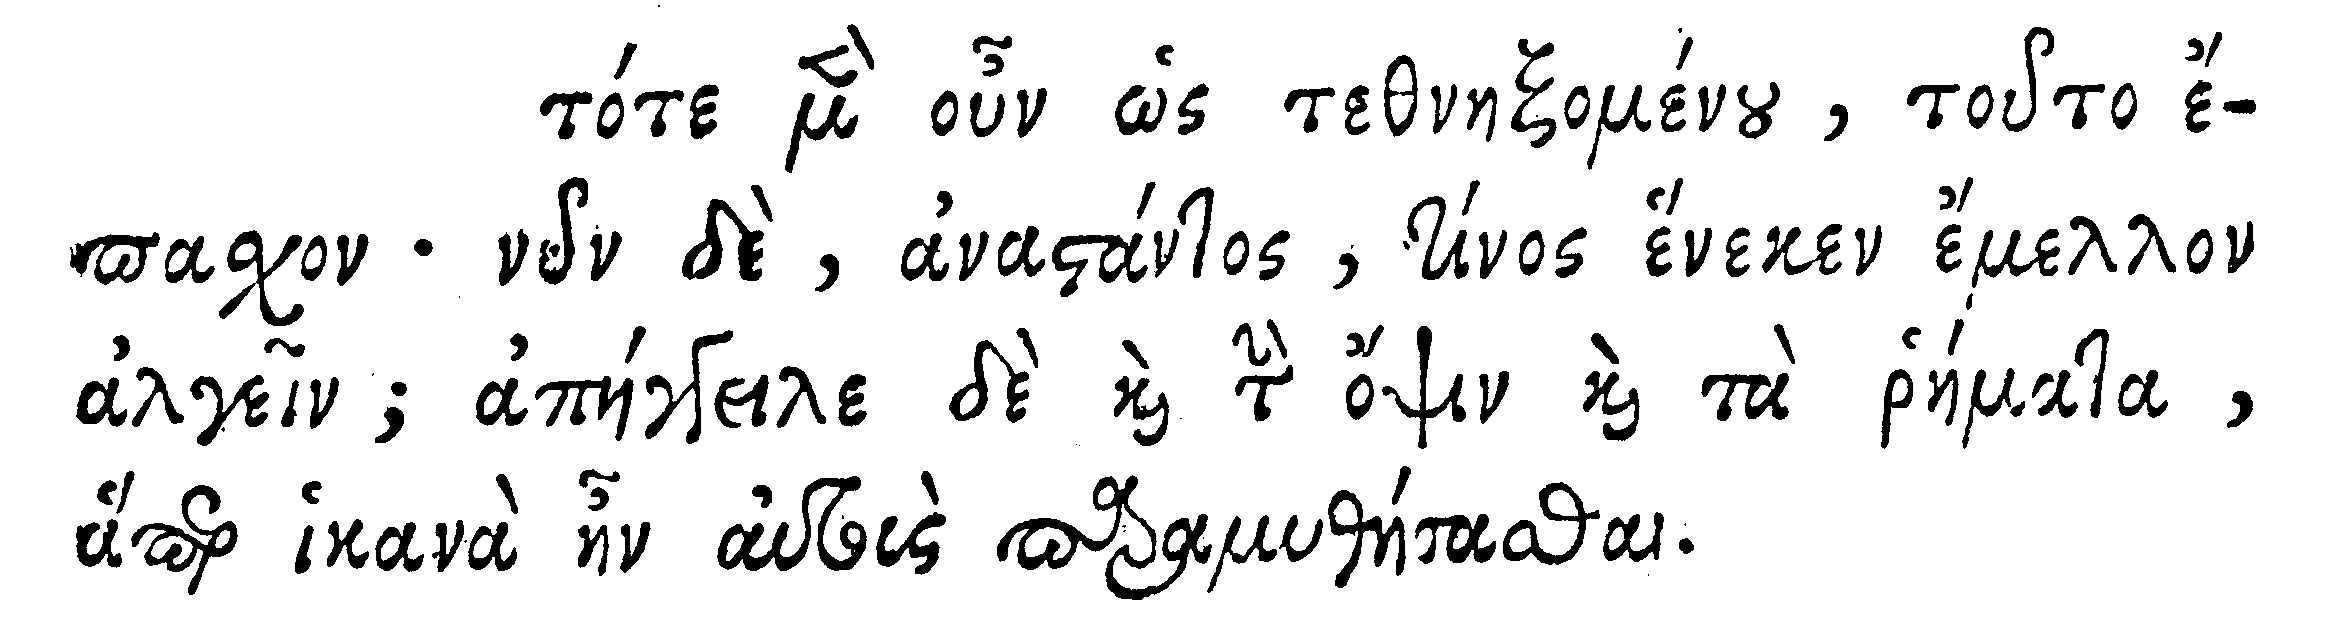 τότε μὲν οὖν ὡς τεθνηξομένου, τοῦτο ἔ-
παχον· νῦν δὲ, ἀναστάντος, τίνος ἕνεκεν ἔμελλον
ἀλγεῖν; ἀπήγγειλε δὲ καὶ τὴν ὄψιν καὶ τὰ ῥήματα,
ἅπερ ἱκανὰ ἦν αὐτοὺς παραμυθήσασθαι.